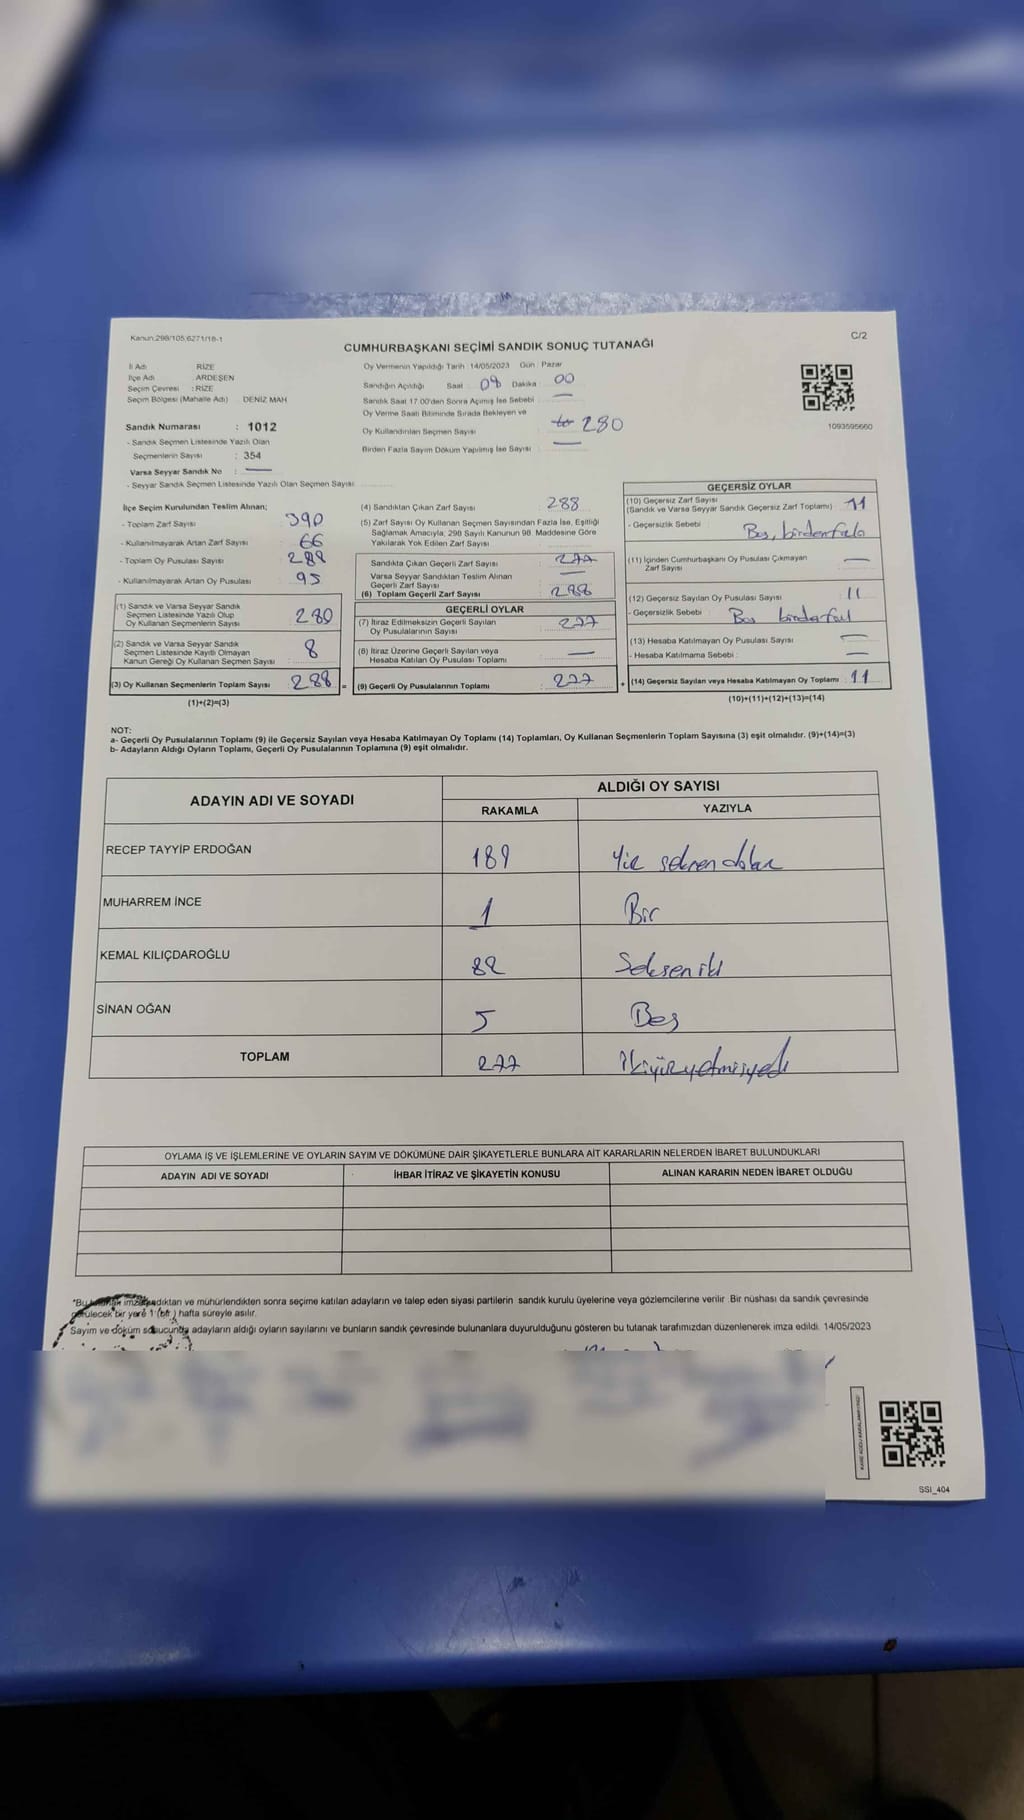 Kanun:298/105,6271/18-1
C/2
CUMHURBAŞKANI SEÇİMİ SANDIK SONUÇ TUTANAĞI
İli Adı RİZE
İlçe Adı : ARDEŞEN
Seçim Çevresi : RİZE
Seçim Bölgesi (Mahalle Adı) DENİZ MAH
Sandık Numarası : 1012
- Sandık Seçmen Listesinde Yazılı Olan
Seçmenlerin Sayısı : 354
Varsa Seyyar Sandık No : —
- Seyyar Sandık Seçmen Listesinde Yazılı Olan Seçmen Sayısı
Oy Vermenin Yapıldığı Tarih :14/05/2023 Gün : Pazar
Sandığın Açıldığı Saat : 08 Dakika : 00
Sandık Saat 17.00'den Sonra Açımış İse Sebebi : —
Oy Verme Saati Bitiminde Sırada Bekleyen ve
Oy Kullandırılan Seçmen Sayısı : 280
Birden Fazla Sayım Döküm Yapılmış İse Sayısı : —
1093595660
İlçe Seçim Kurulundan Teslim Alınan;
- Toplam Zarf Sayısı : 390
- Kullanılmayarak Artan Zarf Sayısı : 66
- Toplam Oy Pusulası Sayısı :
- Kullanılmayarak Artan Oy Pusulası : 95
(1) Sandık ve Varsa Seyyar Sandık
Seçmen Listesinde Yazılı Olup
Oy Kullanan Seçmenlerin Sayısı : 280
(2) Sandık ve Varsa Seyyar Sandık
Seçmen Listesinde Kayıtlı Olmayan
Kanun Gereği Oy Kullanan Seçmen Sayısı : 8
(3) Oy Kullanan Seçmenlerin Toplam Sayısı : 288 =
(1)+(2)=(3)
(4) Sandıktan Çıkan Zarf Sayısı : 288
(5) Zarf Sayısı Oy Kullanan Seçmen Sayısından Fazla İse, Eşitliği
Sağlamak Amacıyla, 298 Sayılı Kanunun 98. Maddesine Göre
Yakılarak Yok Edilen Zarf Sayısı
Sandıkta Çıkan Geçerli Zarf Sayısı : 277
Varsa Seyyar Sandıktan Teslim Alınan
Geçerli Zarf Sayısı : —
(6) Toplam Geçerli Zarf Sayısı : 288
GEÇERLİ OYLAR
(7) İtiraz Edilmeksizin Geçerli Sayılan
Oy Pusulalarının Sayısı : 277
(8) İtiraz Üzerine Geçerli Sayılan veya
Hesaba Katılan Oy Pusulası Toplamı : —
(9) Geçerli Oy Pusulalarının Toplamı : 277 +
GEÇERSİZ OYLAR
(10) Geçersiz Zarf Sayısı
(Sandık ve Varsa Seyyar Sandık Geçersiz Zarf Toplamı) : 11
- Geçersizlik Sebebi : Boş, birden fazla
(11) İçinden Cumhurbaşkanı Oy Pusulası Çıkmayan
Zarf Sayısı : —
(12) Geçersiz Sayılan Oy Pusulası Sayısı : 11
- Geçersizlik Sebebi : Boş
(13) Hesaba Katılmayan Oy Pusulası Sayısı : —
- Hesaba Katılmama Sebebi : —
(14) Geçersiz Sayılan veya Hesaba Katılmayan Oy Toplamı : 11
(10)+(11)+(12)+(13)=(14)
NOT:
a- Geçerli Oy Pusulalarının Toplamı (9) ile Geçersiz Sayılan veya Hesaba Katılmayan Oy Toplamı (14) Toplamları, Oy Kullanan Seçmenlerin Toplam Sayısına (3) eşit olmalıdır. (9)+(14)=(3)
b- Adayların Aldığı Oyların Toplamı, Geçerli Oy Pusulalarının Toplamına (9) eşit olmalıdır.
ADAYIN ADI VE SOYADI
ALDIĞI OY SAYISI
RAKAMLA YAZIYLA
RECEP TAYYİP ERDOĞAN 189 Yüz seksen dokuz
MUHARREM İNCE 1 Bir
KEMAL KILIÇDAROĞLU 82 Seksen iki
SİNAN OĞAN 5 Beş
TOPLAM 277 İkiyüzyetmişyedi
OYLAMA İŞ VE İŞLEMLERİNE VE OYLARIN SAYIM VE DÖKÜMÜNE DAİR ŞİKAYETLERLE BUNLARA AİT KARARLARIN NELERDEN İBARET BULUNDUKLARI
ADAYIN ADI VE SOYADI İHBAR İTİRAZ VE ŞİKAYETİN KONUSU ALINAN KARARIN NEDEN İBARET OLDUĞU
*Bu imzalandıktan ve mühürlendikten sonra seçime katılan adayların ve talep eden siyasi partilerin sandık kurulu üyelerine veya gözlemcilerine verilir .Bir nüshası da sandık çevresinde
görülecek bir yere 1 (bir ) hafta süreyle asılır.
Sayım ve döküm sonucunda adayların aldığı oyların sayılarını ve bunların sandık çevresinde bulunanlara duyurulduğunu gösteren bu tutanak tarafımızdan düzenlenerek imza edildi. 14/05/2023
SSI_404